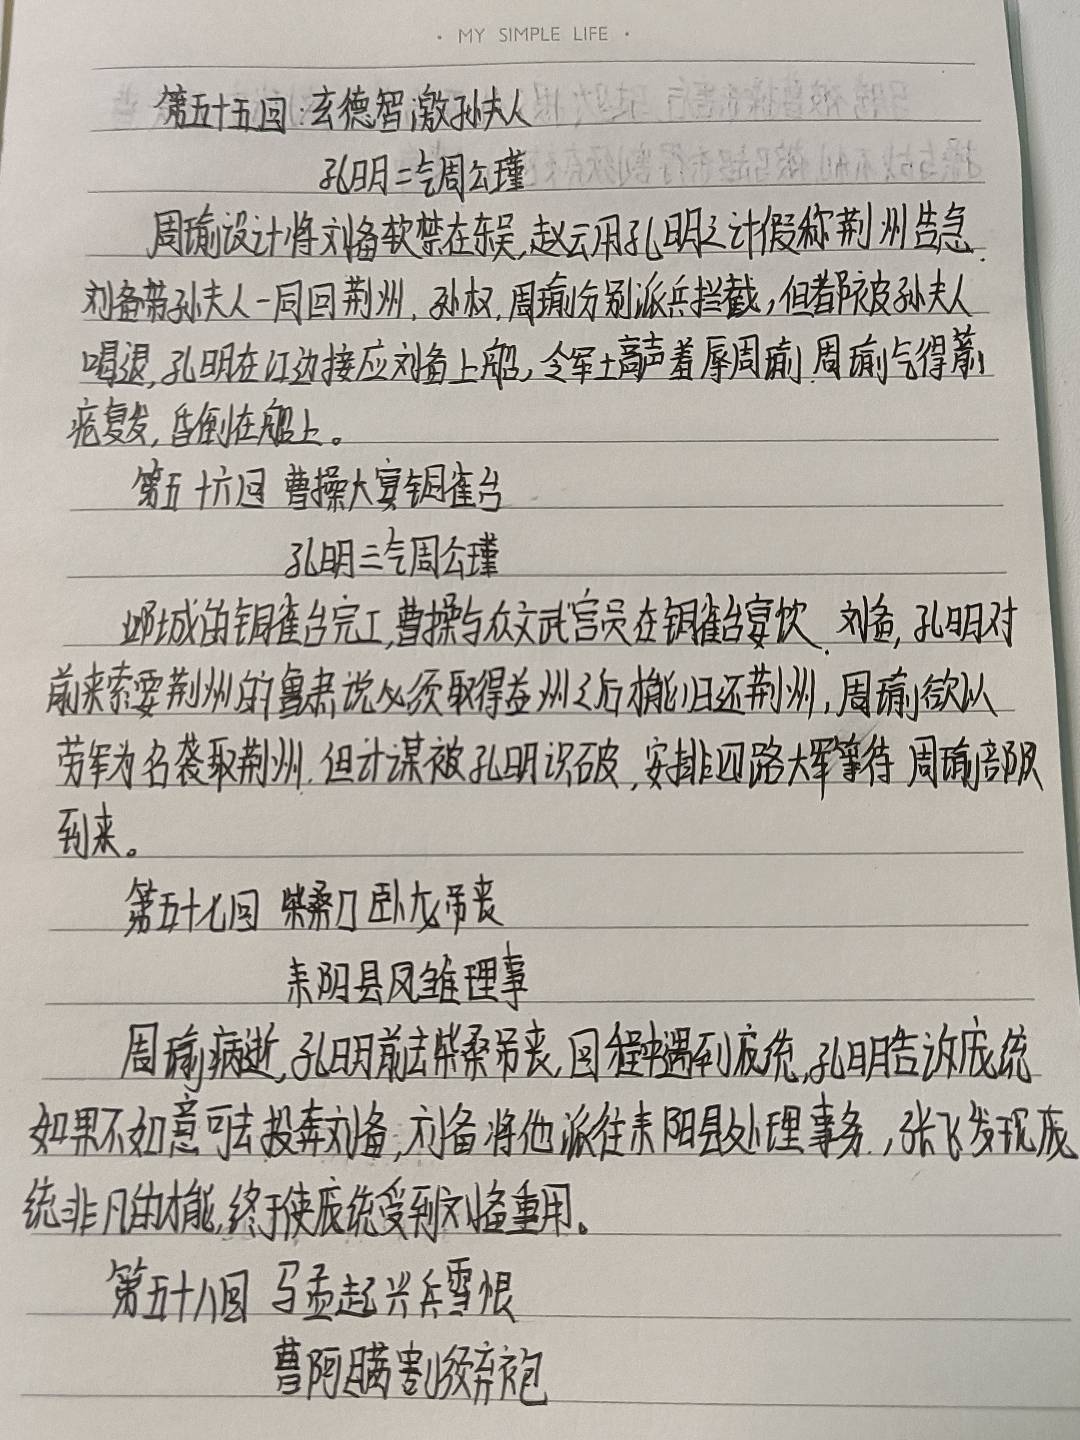 · MY SIMPLE LIFE ·
第五十五回:玄德智激孙夫人
孔明二气周公瑾
周瑜设计将刘备软禁在东吴,赵云用孔明之计假称荆州告急.
刘备带孙夫人一同回荆州,孙权,周瑜分别派兵拦截,但都被孙夫人
喝退,孔明在江边接应刘备上船,令军士高声羞辱周瑜.周瑜气得箭
疮复发,昏倒在船上。
第五十六回 曹操大宴铜雀台
孔明三气周公瑾
邺城的铜雀台完工,曹操与众文武官员在铜雀台宴饮.刘备,孔明对
前来索要荆州的鲁肃说必须取得益州之后才能归还荆州,周瑜欲以
劳军为名袭取荆州.但计谋被孔明识破,安排四路大军等待 周瑜部队
到来。
第五十七回 柴桑口卧龙吊丧
耒阳县凤雏理事
周瑜病逝,孔明前去柴桑吊丧,回程中遇到庞统,孔明告诉庞统
如果不如意可去投奔刘备,刘备将他派往耒阳县处理事务.,张飞发现庞
统非凡的才能,终于使庞统受到刘备重用。
第五十八回 马孟起兴兵雪恨
曹阿瞒割须弃袍